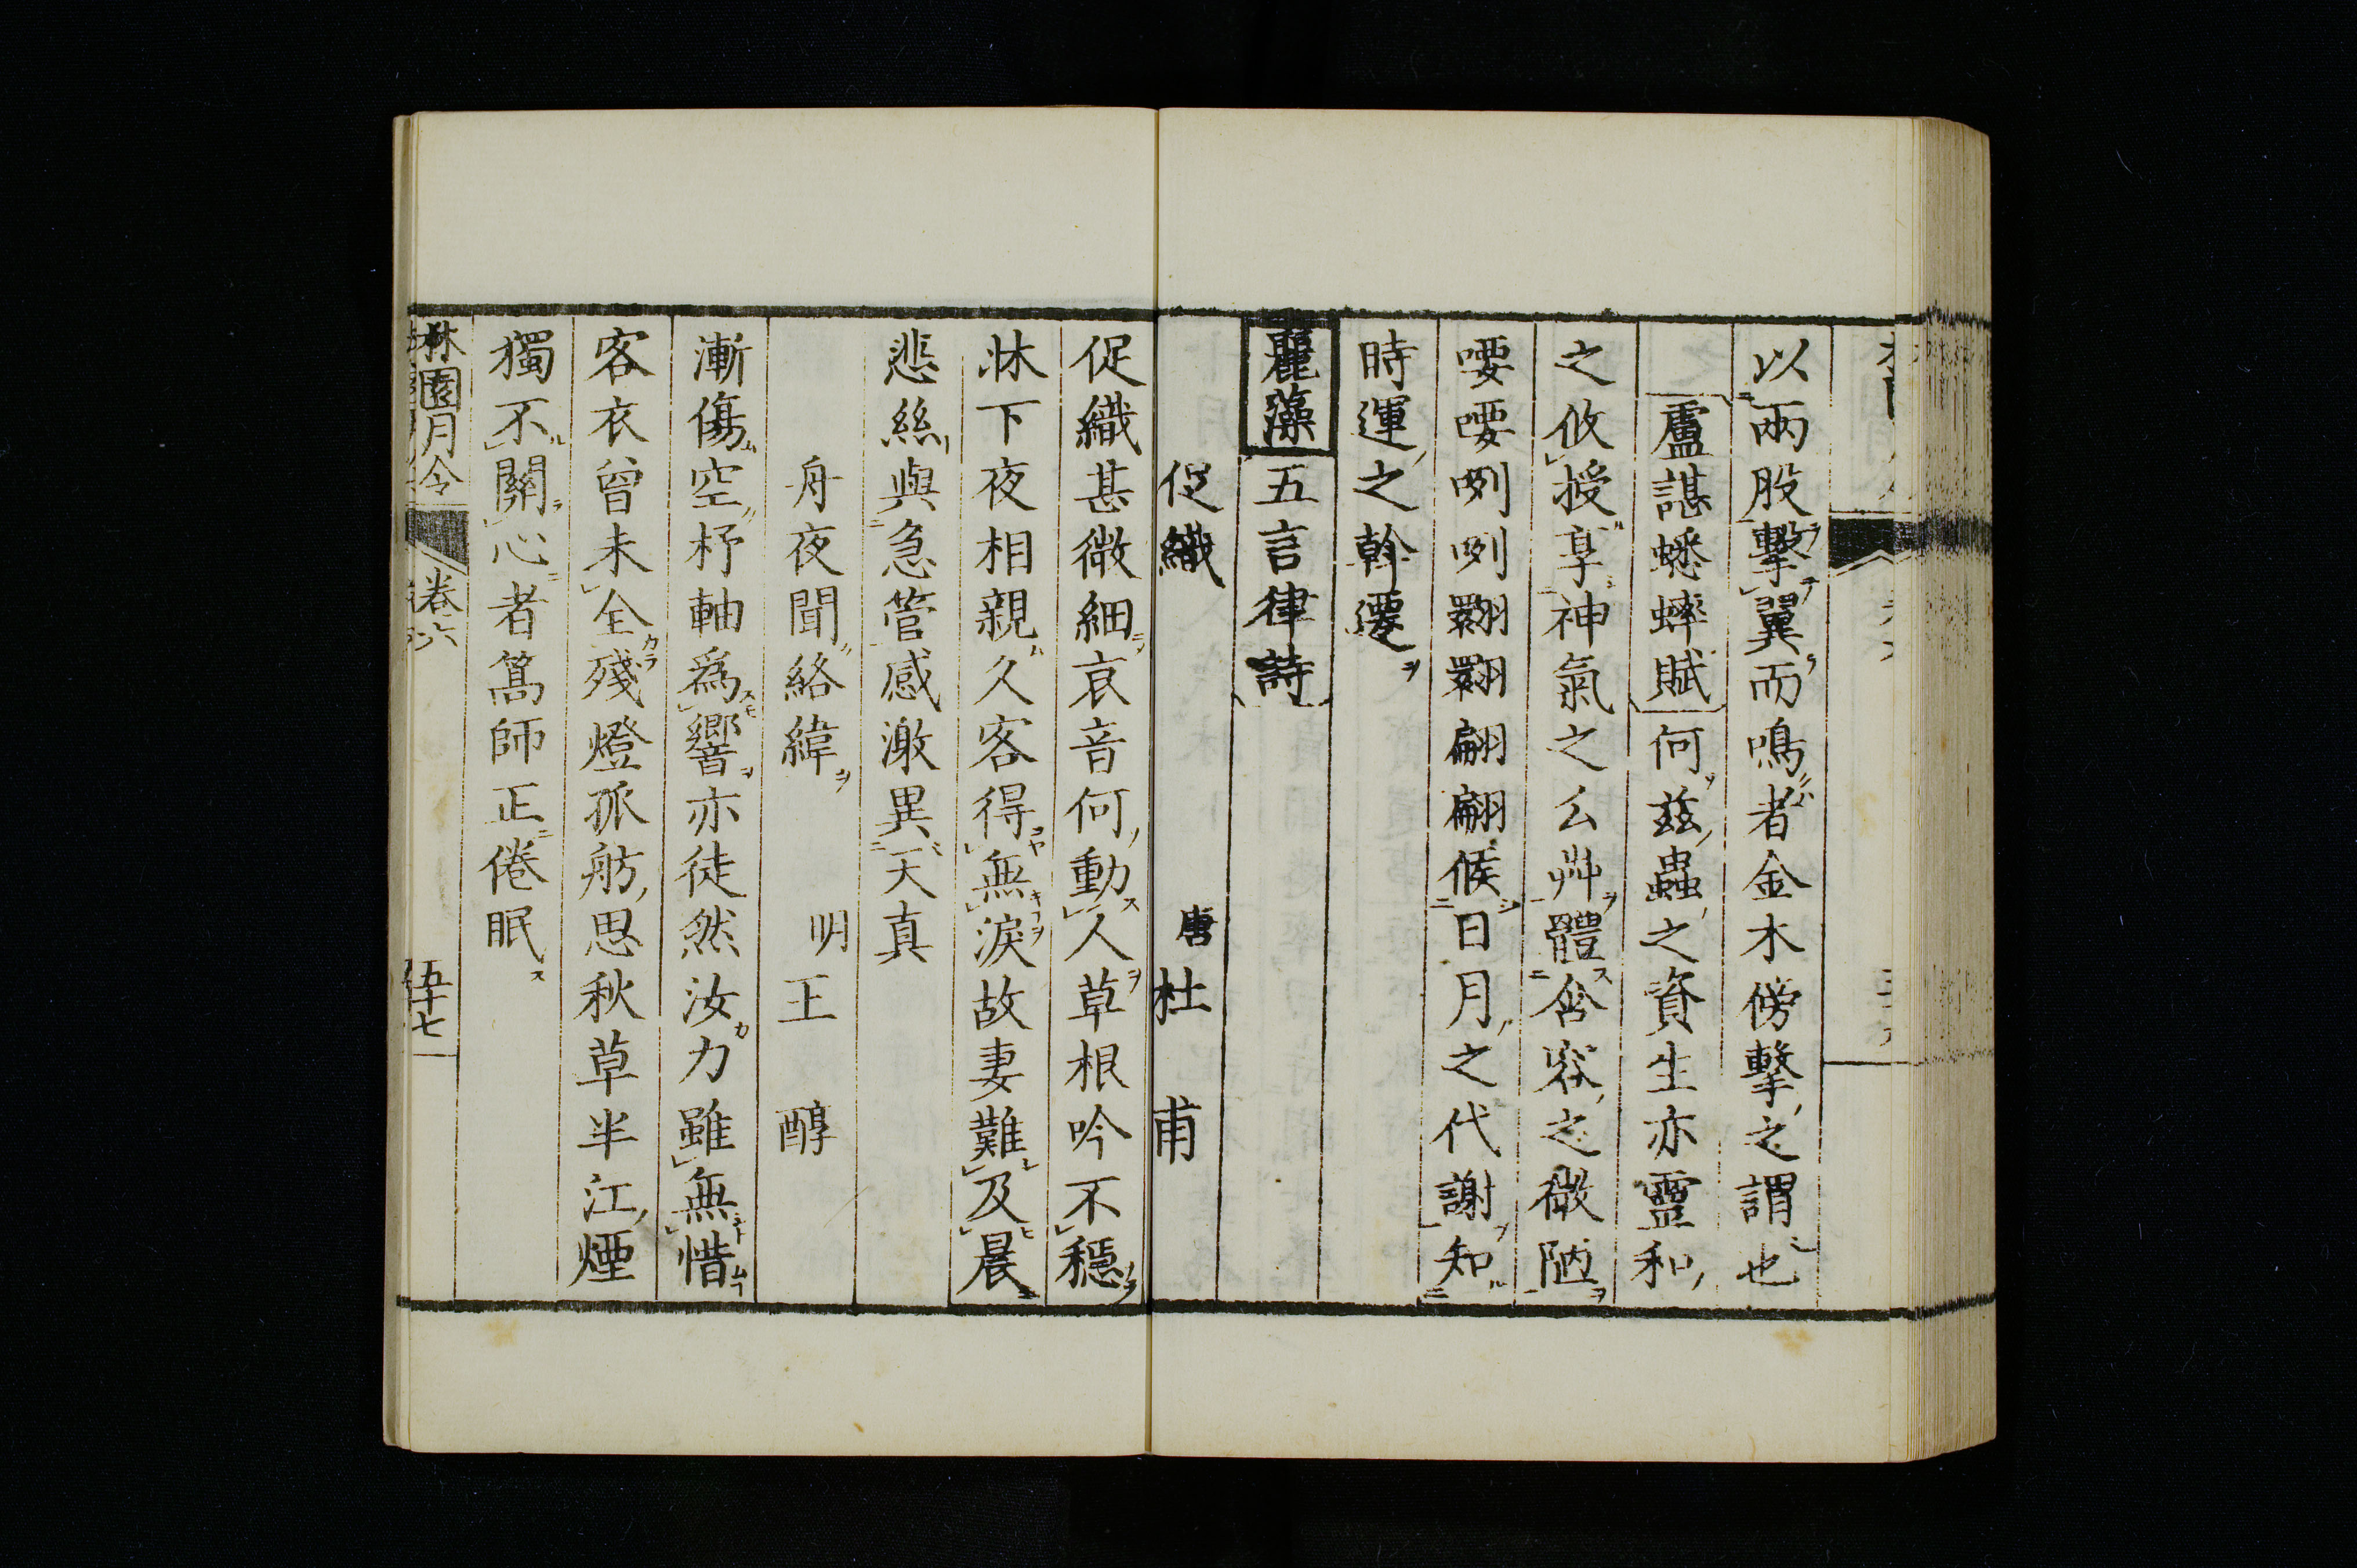 以兩股擊翼而鳴者金木傍擊之謂也
盧諶蟋蟀賦何茲蟲之資生亦靈和
之攸授享神氣之么艸體含容之微陋
喓喓咧咧翾翾翩翩候日月之代謝知
時運之斡遷
麗藻五言律詩
促織 唐 杜甫
促織甚微細哀音何動人草根吟不穩
牀下夜相親久客得無淚故妻難及晨
悲絲與急管感激異天真
舟夜聞絡緯 明 王醇
漸傷空杼軸為響亦徒然汝力雖無惜
客衣曾未全殘燈孤舫思秋草半江煙
獨不關心者篙師正倦眠
林園月令 卷六 五十七